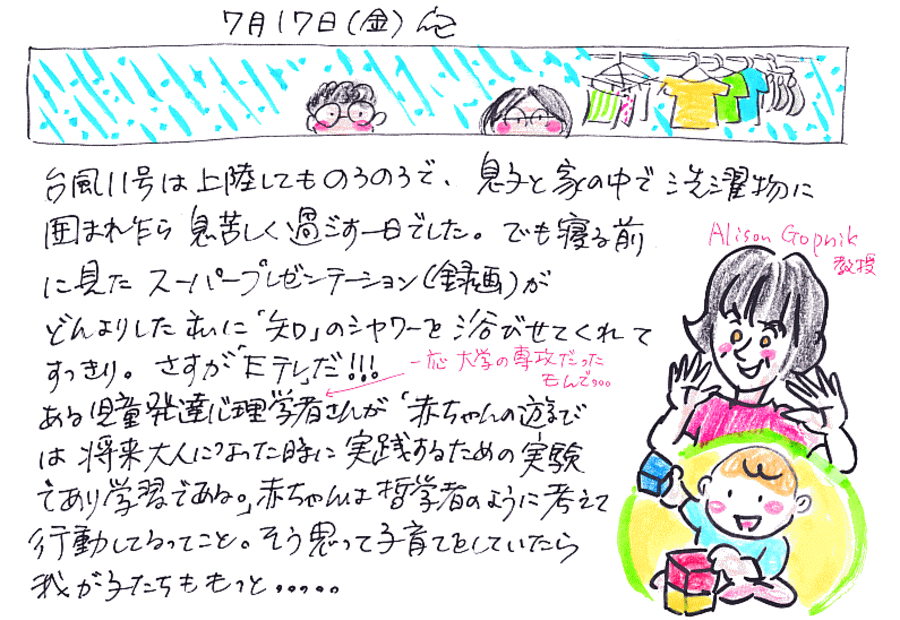 7月17日(金)
台風11号は上陸してものろのろで、息子と家の中で洗濯物に
囲まれ乍ら息苦しく過ごす一日でした。でも寝る前
に見たスーパープレゼンテーション(録画)が
どんよりした私に「知」のシャワーを浴びせてくれて
すっきり。さすが「Eテレ」だ!!!
ある児童発達心理学者さんが「赤ちゃんの遊びで
は将来大人になった時に実践するための実験
であり学習である。」赤ちゃんは哲学者のように考えて
行動してるってこと。そう思って子育てをしていたら
我が子たちももっと.....
一応大学の専攻だった
もんで...
Alison Gopnik
教授